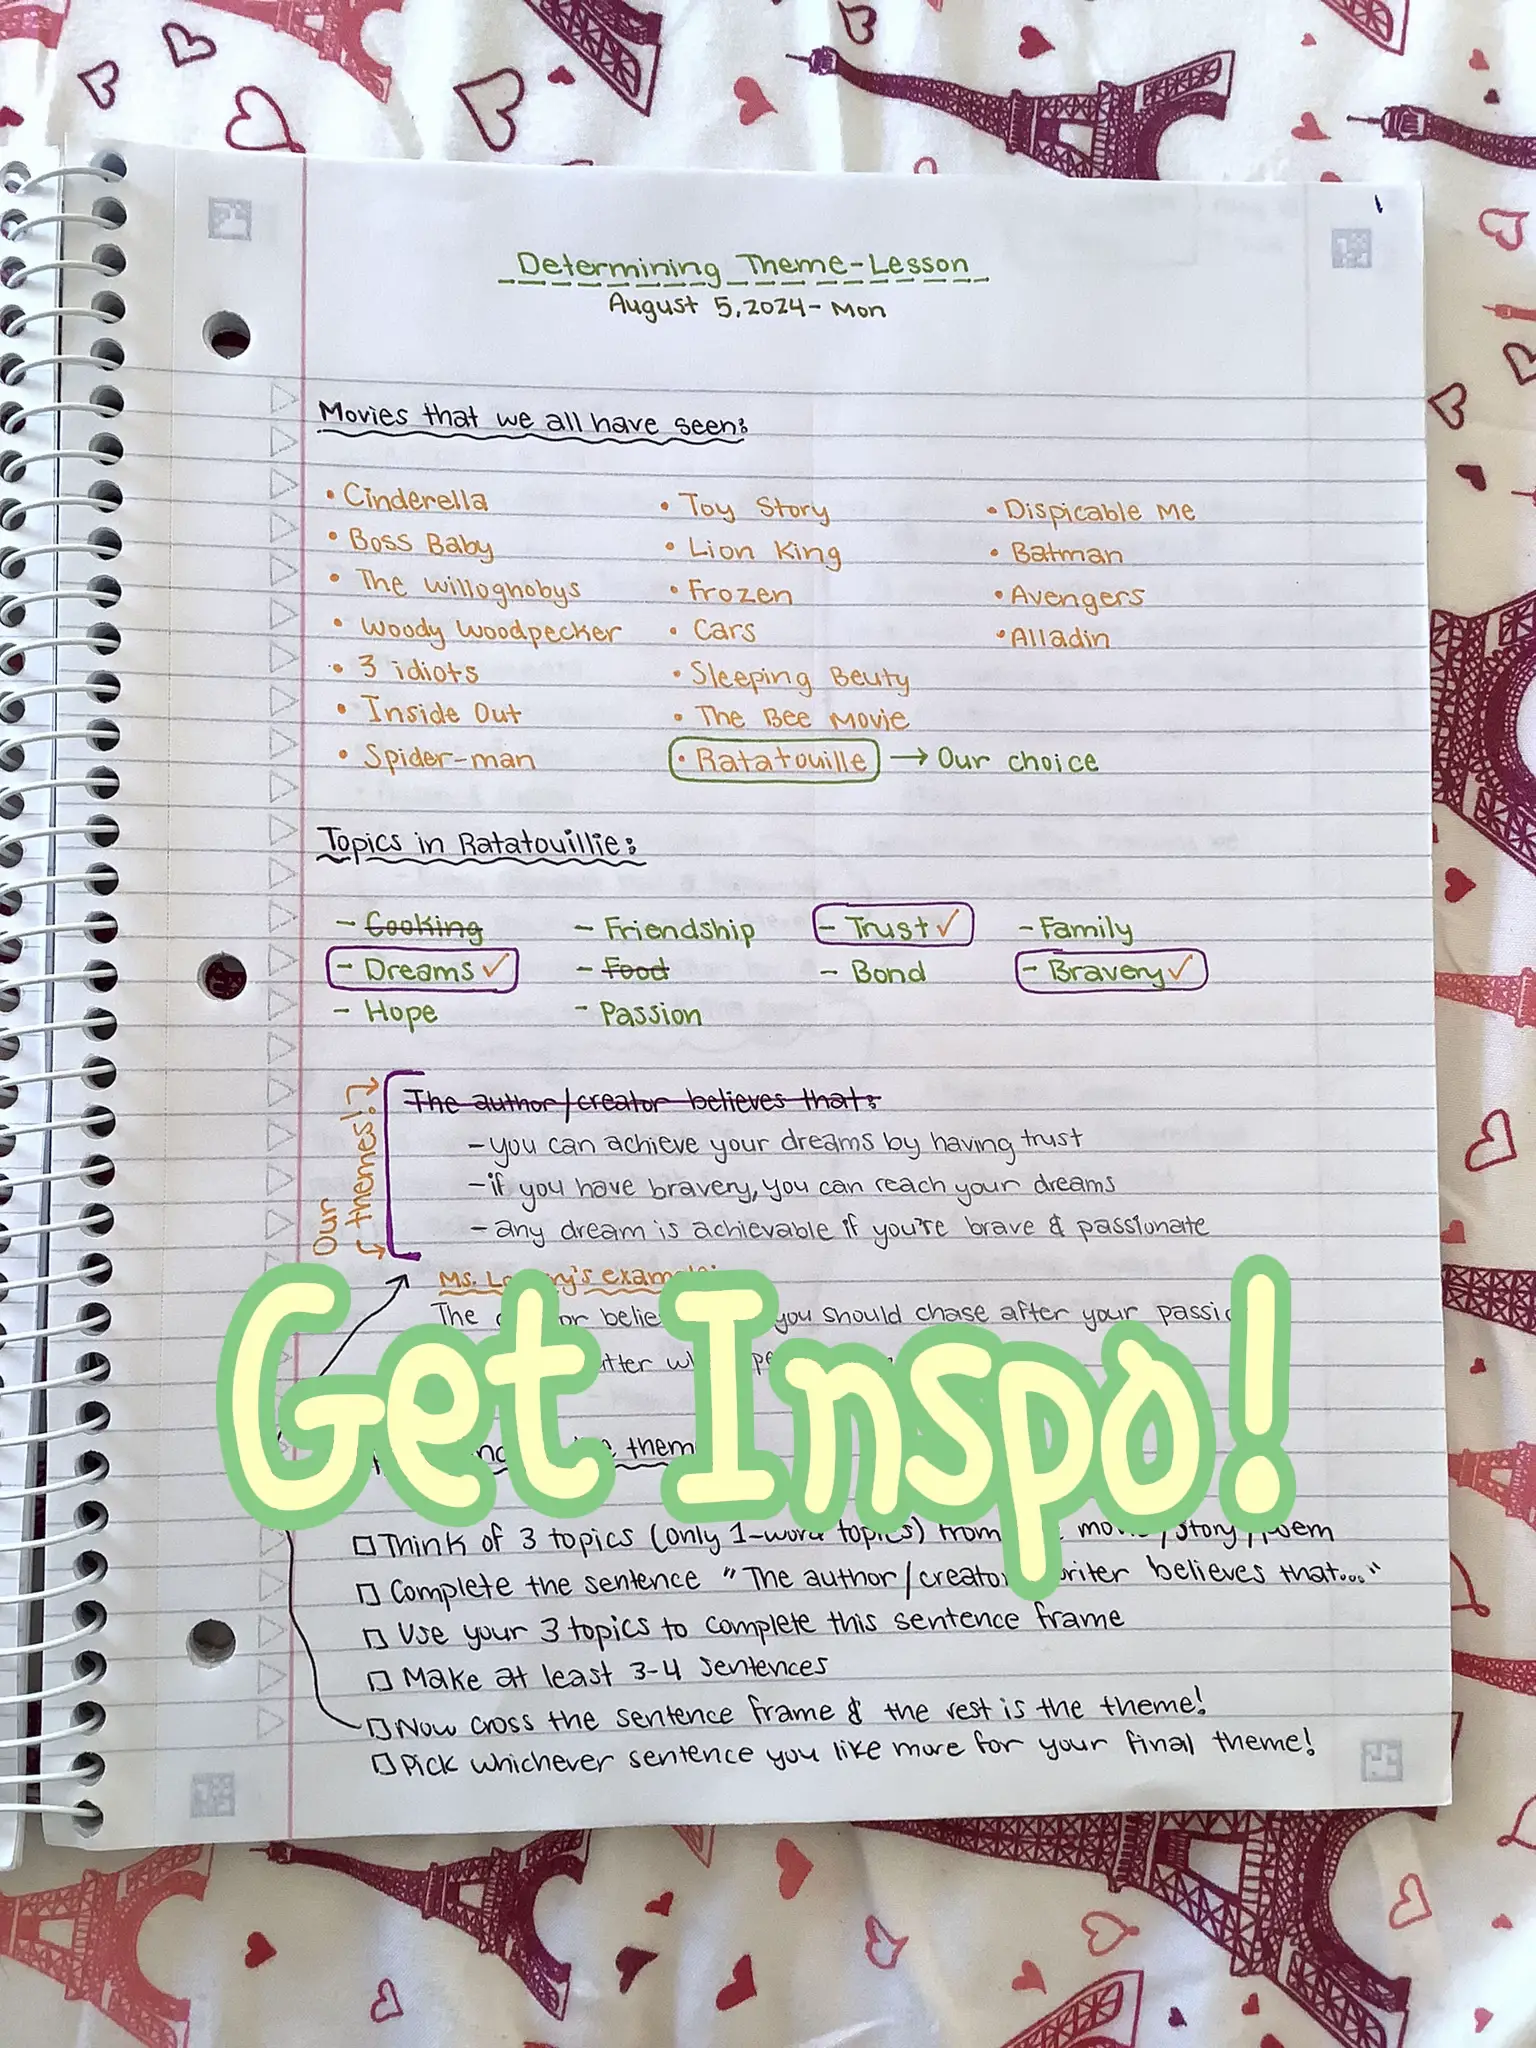 1
Determining Theme-Lesson
August 5, 2024- Mon
Movies that we all have seen:
• Cinderella
• Boss Baby
• The Willognobys
• Woody Woodpecker
• 3 idiots
• Inside Out
• Spider-man
• Toy Story
• Lion King
• Frozen
• Cars
• Sleeping Beuty
• The Bee Movie
• Ratatouille → Our choice
• Dispicable Me
• Batman
• Avengers
• Alladin
Topics in Ratatouillie:
- Cooking - Friendship - Trust ✓ - Family
- Dreams ✓ - Food - Bond - Bravery ✓
- Hope - Passion
Our themes!
The author/creator believes that:
- you can achieve your dreams by having trust
- if you have bravery, you can reach your dreams
- any dream is achievable if you're brave & passionate
Ms.
The you should chase after your
Get Inspo!
□ Think of 3 topics (only 1-word topics) from movie/story/poem
□ Complete the sentence "The author/creator writer believes that..."
□ Use your 3 topics to complete this sentence frame
□ Make at least 3-4 sentences
□ Now cross the sentence frame & the rest is the theme!
□ Pick whichever sentence you like more for your final theme!